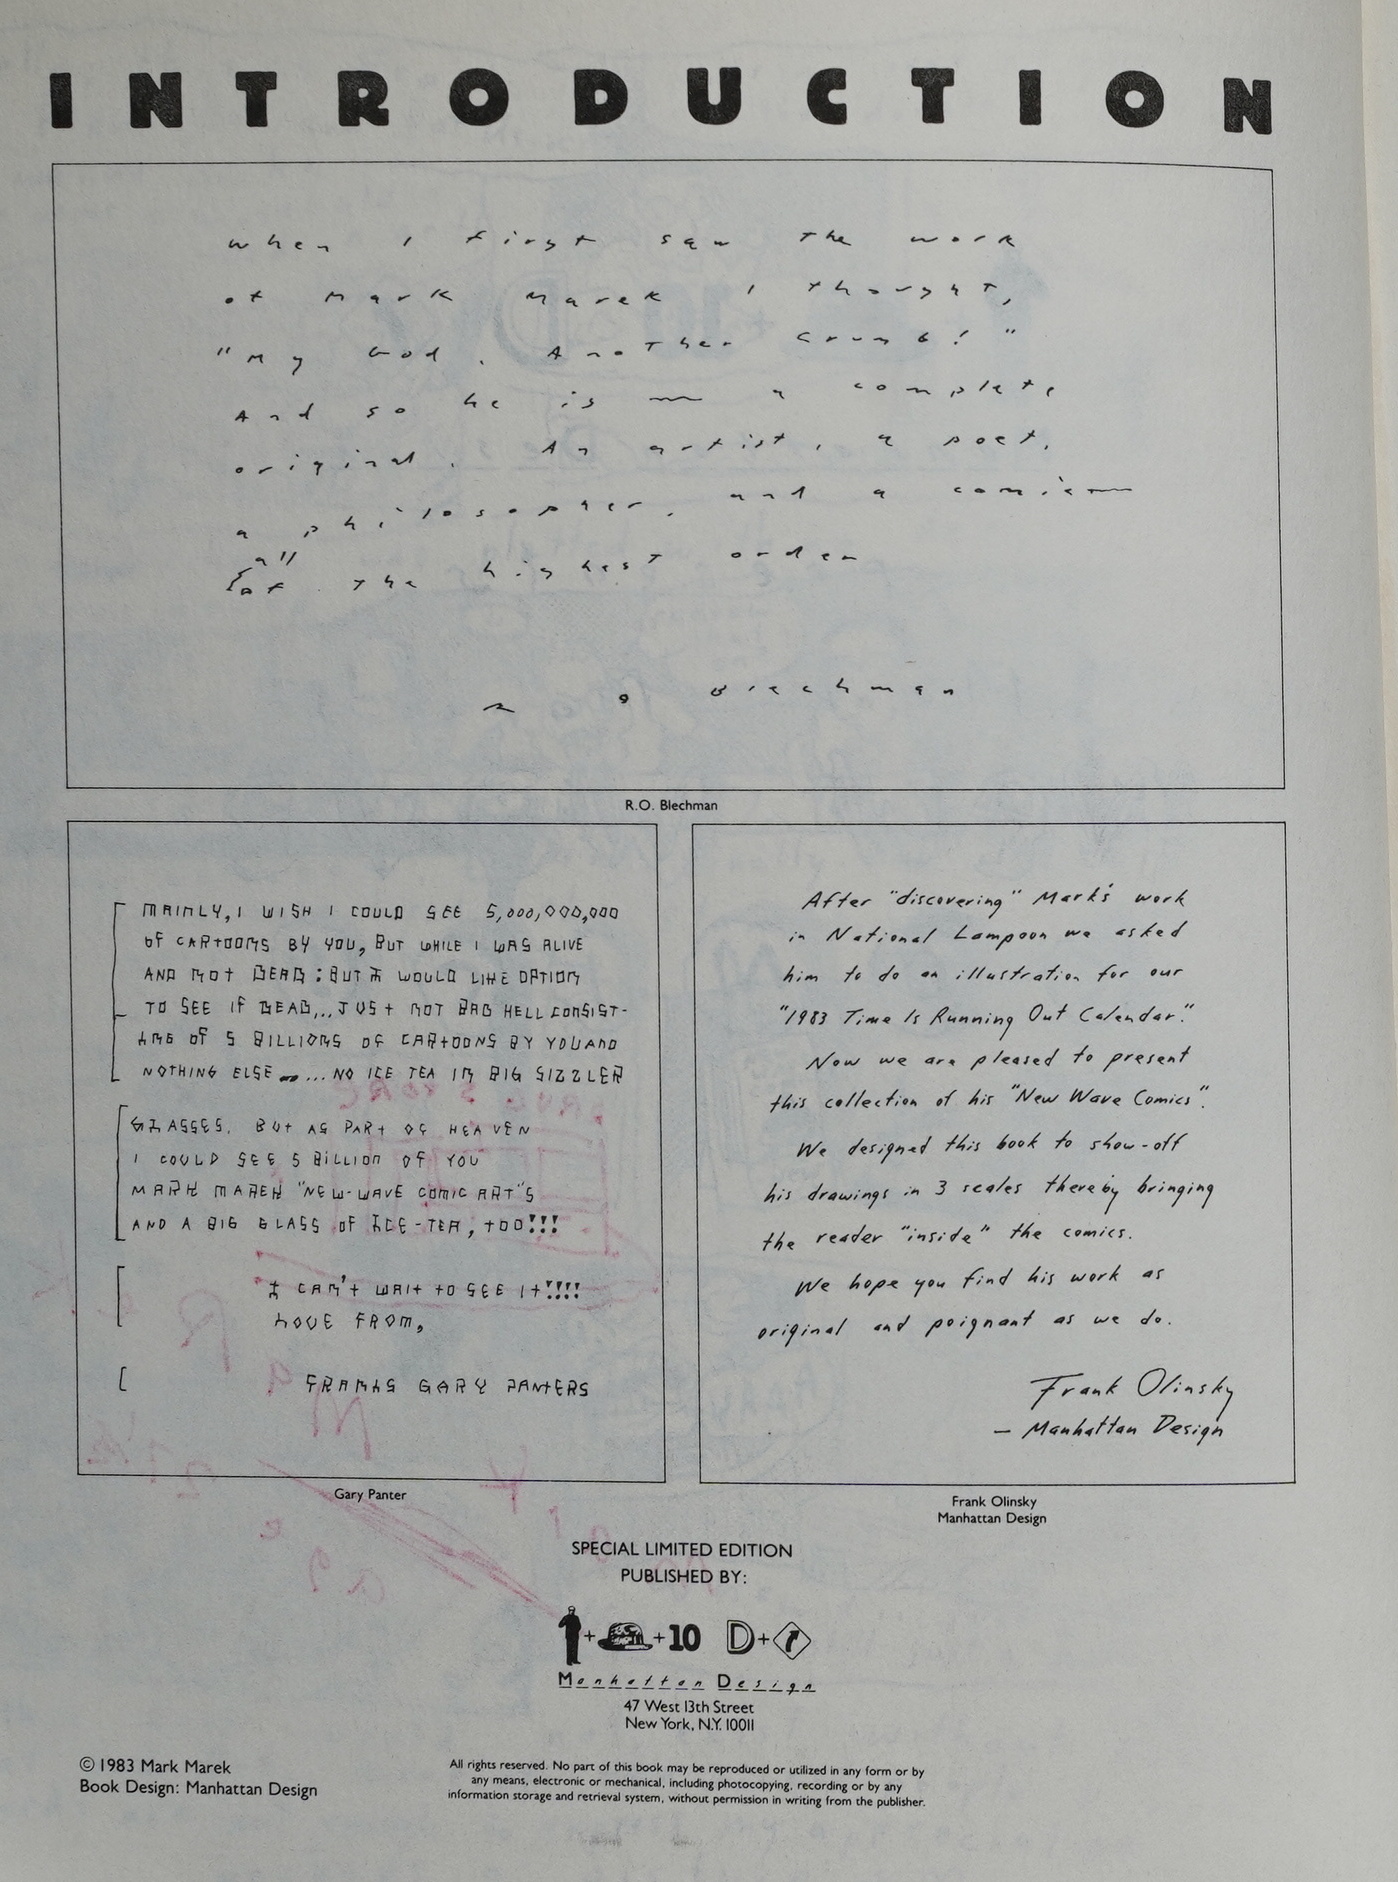 INTRODUCTION
when I first saw the work
of Mark Marek I thought,
"My God. Another Crumb!"
And so he is — a complete
original. An artist, a poet,
a philosopher, and a comic—
all
of the highest order
R O Blechman
R.O. Blechman
MAINLY, I WISH I COULD SEE 5,000,000,000
OF CARTOONS BY YOU, BUT WHILE I WAS ALIVE
AND NOT DEAD: BUT I WOULD LIKE OPTION
TO SEE IF DEAD,.. JUST NOT BAD HELL CONSIST-
ING OF 5 BILLIONS OF CARTOONS BY YOU AND
NOTHING ELSE ... NO ICE TEA IN BIG SIZZLER
GLASSES. BUT AS PART OF HEAVEN
I COULD SEE 5 BILLION OF YOU
MARK MAREK "NEW-WAVE COMIC ART"S
AND A BIG GLASS OF ICE-TEA, TOO!!!
I CAN'T WAIT TO SEE IT!!!!
LOVE FROM,
FRANKS GARY PANTERS
Gary Panter
After "discovering" Mark's work
in National Lampoon we asked
him to do an illustration for our
"1983 Time Is Running Out Calendar".
Now we are pleased to present
this collection of his "New Wave Comics".
We designed this book to show-off
his drawings in 3 scales thereby bringing
the reader "inside" the comics.
We hope you find his work as
original and poignant as we do.
Frank Olinsky
— Manhattan Design
Frank Olinsky
Manhattan Design
SPECIAL LIMITED EDITION
PUBLISHED BY:
+ +10 D+
Manhattan Design
47 West 13th Street
New York, N.Y. 10011
© 1983 Mark Marek
Book Design: Manhattan Design
All rights reserved. No part of this book may be reproduced or utilized in any form or by
any means, electronic or mechanical, including photocopying, recording or by any
information storage and retrieval system, without permission in writing from the publisher.